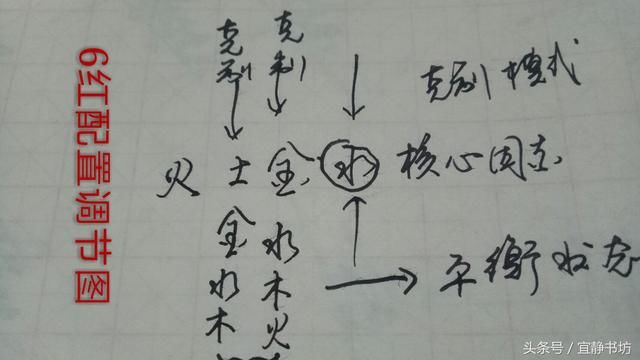 6红配置调节图
克制 克制 克制模式
火 土 金 水 核心因素
金 水
水 木 平衡状态
木 火
头条号 / 宜静书坊